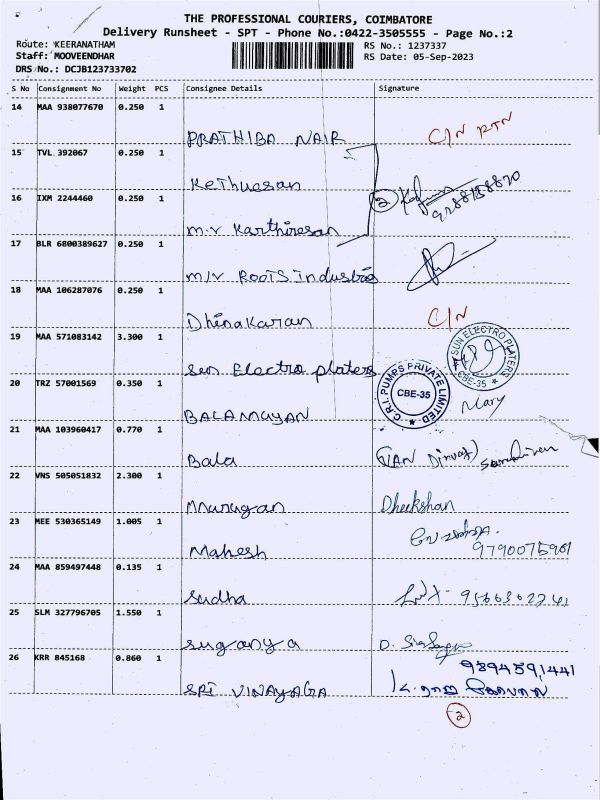 THE PROFESSIONAL COURIERS, COIMBATORE
Delivery Runsheet - SPT - Phone No.:0422-3505555 - Page No.:2
Route: KEERANATHAM RS No.: 1237337
Staff: MOOVEENDHAR RS Date: 05-Sep-2023
DRS No.: DCJB123733702
S No Consignment No Weight PCS Consignee Details Signature
14 MAA 938077670 0.250 1
PRATHIBA NAIR C/N RTN
15 TVL 392067 0.250 1
Kethuesan
16 IXM 2244460 0.250 1
2 9788158870
M.V Karthiresan
17 BLR 6800389627 0.250 1
M/V ROOTS Industries
18 MAA 106287076 0.250 1
Dhinakaran C/N
19 MAA 571083142 3.300 1
SUN ELECTRO PLATERS CBE-35
Sun Electro platers
20 TRZ 57001569 0.350 1
C.R.I. PUMPS PRIVATE LIMITED CBE-35
BALAMUYAN Mary
21 MAA 103960417 0.770 1
Bala
22 VNS 505051832 2.300 1
Murugan Dheekshan
23 MEE 530365149 1.005 1
Mahesh 9790075961
24 MAA 859497448 0.135 1
Sudha
25 SLM 327796705 1.550 1
Suganya D.
26 KRR 845168 0.860 1 9894591441
SRI VINAYAGA
2